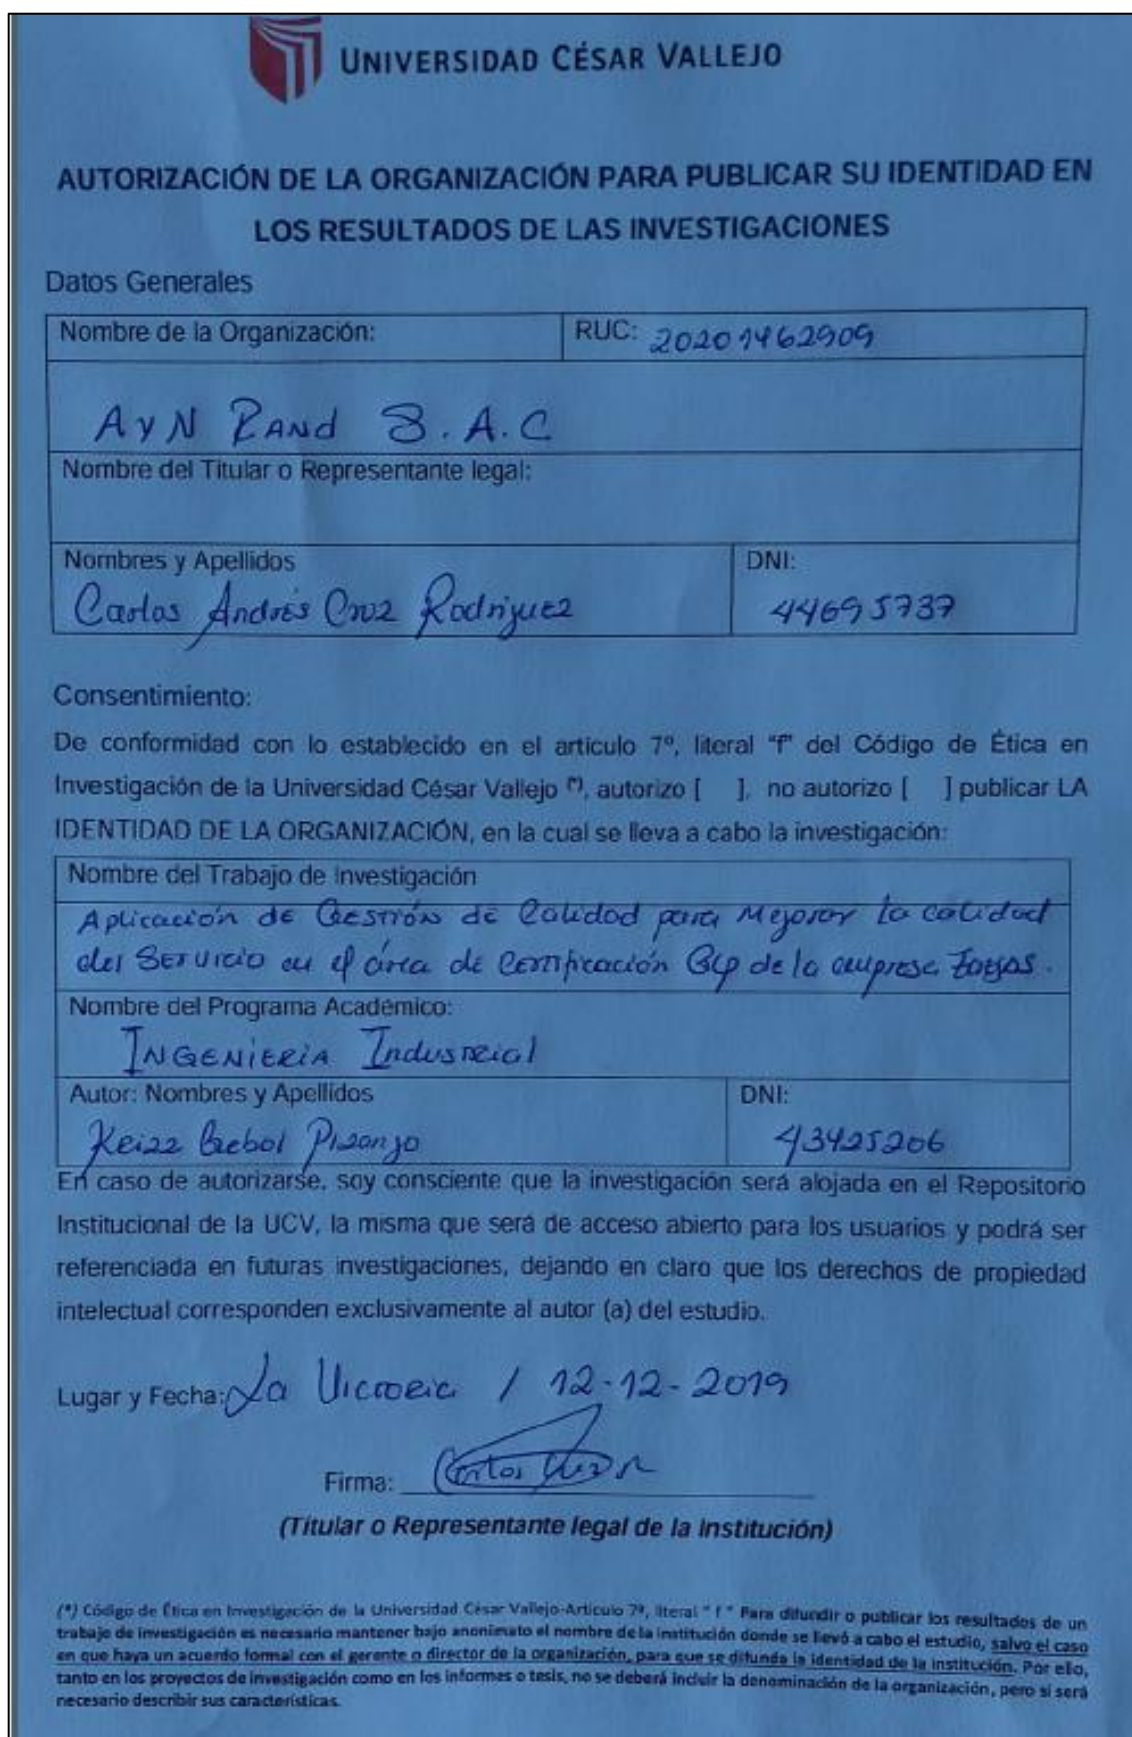 UNIVERSIDAD CÉSAR VALLEJO
AUTORIZACIÓN DE LA ORGANIZACIÓN PARA PUBLICAR SU IDENTIDAD EN
LOS RESULTADOS DE LAS INVESTIGACIONES
Datos Generales
Nombre de la Organización: RUC: 20201462909
AYN RANd S.A.C
Nombre del Titular o Representante legal:
Nombres y Apellidos DNI:
Carlos Andrés Cruz Rodriguez 44695737
Consentimiento:
De conformidad con lo establecido en el artículo 7º, literal "f" del Código de Ética en
Investigación de la Universidad César Vallejo (*), autorizo [ ], no autorizo [ ] publicar LA
IDENTIDAD DE LA ORGANIZACIÓN, en la cual se lleva a cabo la investigación:
Nombre del Trabajo de Investigación
Aplicación de Gestión de Calidad para Mejorar la calidad
del Servicio en el área de Certificación Glp de la empresa
Nombre del Programa Académico:
INGENIERIA Industrial
Autor: Nombres y Apellidos DNI:
43425206
En caso de autorizarse, soy consciente que la investigación será alojada en el Repositorio
Institucional de la UCV, la misma que será de acceso abierto para los usuarios y podrá ser
referenciada en futuras investigaciones, dejando en claro que los derechos de propiedad
intelectual corresponden exclusivamente al autor (a) del estudio.
Lugar y Fecha: La Victoria / 12-12-2019
Firma: Carlos Cruz R
(Titular o Representante legal de la Institución)
(*) Código de Ética en Investigación de la Universidad César Vallejo-Artículo 7º, literal " f " Para difundir o publicar los resultados de un
trabajo de investigación es necesario mantener bajo anonimato el nombre de la institución donde se llevó a cabo el estudio, salvo el caso
en que haya un acuerdo formal con el gerente o director de la organización, para que se difunda la identidad de la institución. Por ello,
tanto en los proyectos de investigación como en los informes o tesis, no se deberá incluir la denominación de la organización, pero sí será
necesario describir sus características.